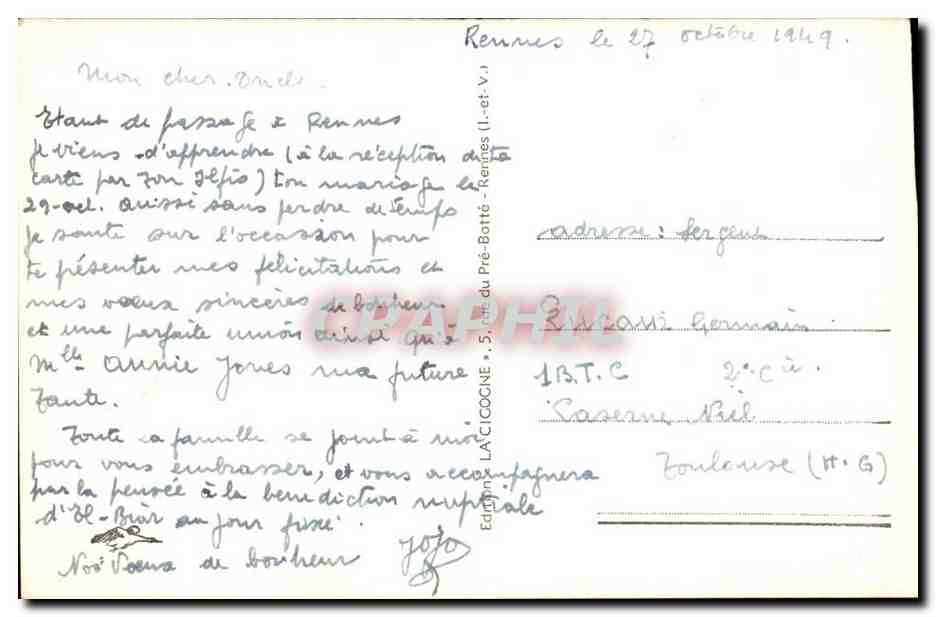 Rennes le 27 octobre 1949.
Mon cher Oncle.
Etant de passage à Rennes
je viens d'apprendre (à la réception de ta
carte par ton ) ton mariage le
29-oct. aussi sans perdre de temps
je saute sur l'occassion pour
te présenter mes félicitations et
mes vœux sincères de bonheur
et une parfaite union ainsi qu'à
Mlle Annie Jones ma future
Tante.
Toute la famille se joint à moi
pour vous embrasser, et vous accompagnera
par la pensée à la benediction nuptiale
d'El-Biar au jour fixé.
Nos Voeux de bonheur
JoJo
Editions " LA CICOGNE ", 5, rue du Pré-Botté - Rennes (I.-et-V.)
adresse: Sergent
Germain
1 B.T.C 2e Cie.
Caserne Niel
Toulouse (H-G)
CPAPHIL